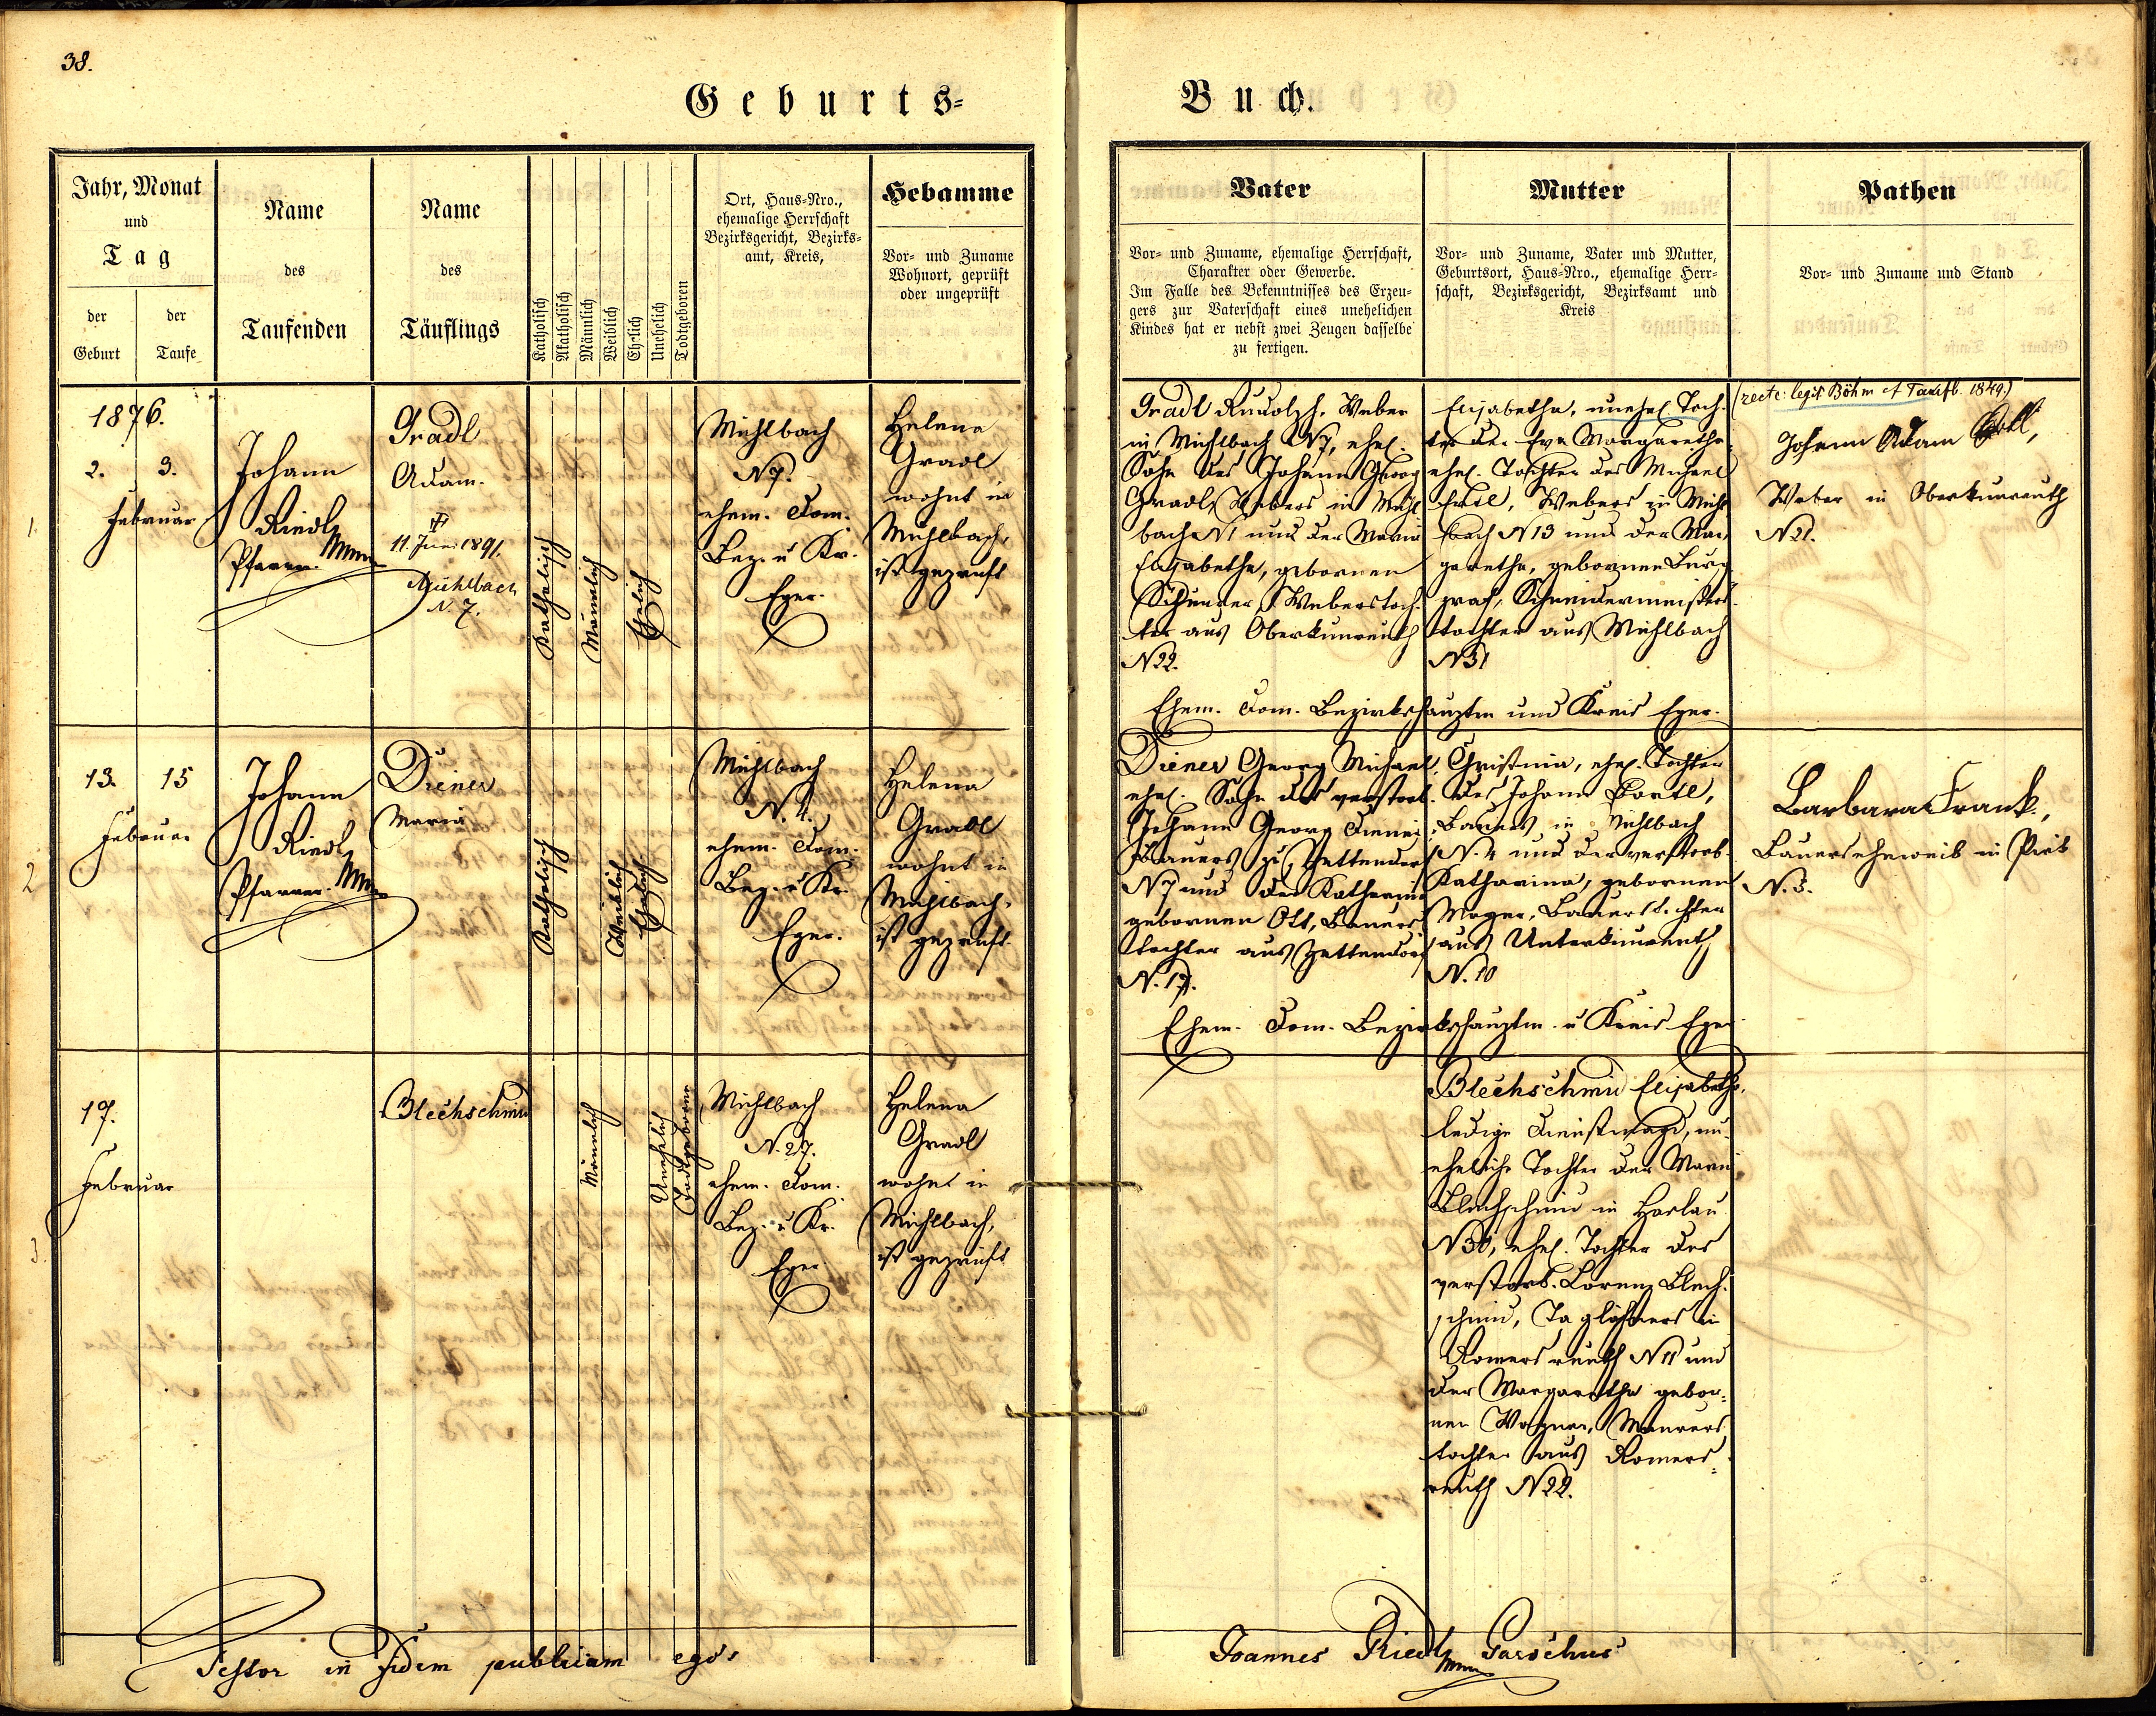 38.
Geburts-
Buch.
Jahr, Monat
und
Tag
der
Geburt
der
Taufe
Name
des
Taufenden
Name
des
Täuflings
Katholisch
Akatholisch
Männlich
Weiblich
Ehelich
Unehelich
Todtgeboren
Ort, Haus-Nro.,
ehemalige Herrschaft
Bezirksgericht, Bezirks-
amt, Kreis,
Hebamme
Vor- und Zuname
Wohnort, geprüft
oder ungeprüft
Vater
Vor- und Zuname, ehemalige Herrschaft,
Charakter oder Gewerbe.
Im Falle des Bekenntnisses des Erzeu-
gers zur Vaterschaft eines unehelichen
Kindes hat er nebst zwei Zeugen dasselbe
zu fertigen.
Mutter
Vor- und Zuname, Vater und Mutter,
Geburtsort, Haus-Nro., ehemalige Herr-
schaft, Bezirksgericht, Bezirksamt und
Kreis
Pathen
Vor- und Zuname und Stand
1
1876.
2. 3.
Februar
Johann
Riedl
Pfarrer
Gradl
Adam.
11. Juni 1891.
Mühlbach
N. 7.
Katholisch
Männlich
Ehelich
Mühlbach
N 7.
ehem. Dom.
Bez. u Kr.
Eger.
Helena
Gradl
wohnt in
Mühlbach,
ist geprüft
Gradl Rudolph, Weber
in Mühlbach N 7, ehel.
Sohn des Johann Georg
Gradl, Webers in Mühl-
bach N 1 und der Maria
Elisabetha, gebornen
Weberstoch-
ter aus Oberkunreuth
N 22.
Elisabetha, unehel. Toch-
ter der Eva Margaretha
ehel. Tochter des Michael
Webers in Mühl-
bach N 13 und der Mar-
garetha, gebornen Burg-
graf, Schneidermeisters-
tochter aus Mühlbach
N 31
Ehem. Dom. Bezirkshauptm und Kreis Eger.
(recte: legit Böhm cf Taufb. 1849.)
Johann Adam
Weber in Oberkunreuth
N 21.
2
13. 15
Februar
Johann
Riedl
Pfarrer
Diener
Maria
Katholisch
Weiblich
Ehelich
Mühlbach
N. 4.
ehem. Dom.
Bez. u Kr.
Eger.
Helena
Gradl
wohnt in
Mühlbach,
ist geprüft.
Diener Georg Michael,
ehel. Sohn des verstorb.
Johann Georg Diener
Bauers zu Zettendorf
N 7 und der Katharina
gebornen Ott, Bauers-
tochter aus Zettendorf
N. 17.
Christina, ehel. Tochter
des Johann
Bauers in Mühlbach
N. 4 und der verstorb.
Katharina, gebornen
Mayer, Bauerstochter
aus Unterkunreuth
N. 10
Ehem. Dom. Bezirkshauptm. u Kreis Eger
Barbara Frank,
Bauerseheweib in Pirk
N. 3.
3.
17.
Februar
Blechschmid
Männlich
Unehelich
Todtgeboren
Mühlbach
N. 27.
ehem. Dom.
Bez. u Kr.
Eger
Helena
Gradl
wohnt in
Mühlbach,
ist geprüft
Blechschmid Elisabetha,
ledige Dienstmagd, un-
eheliche Tochter der Maria
Blechschmid in Haslau
N 30, ehel. Tochter des
verstorb. Lorenz Blech-
schmid, Taglöhners in
Romersreuth N 11 und
der Margaretha gebor-
nen Wagner, Maurers-
tochter aus Romers-
reuth N 22.
Testor in fidem publicam ego:
Joannes Riedl Parochus